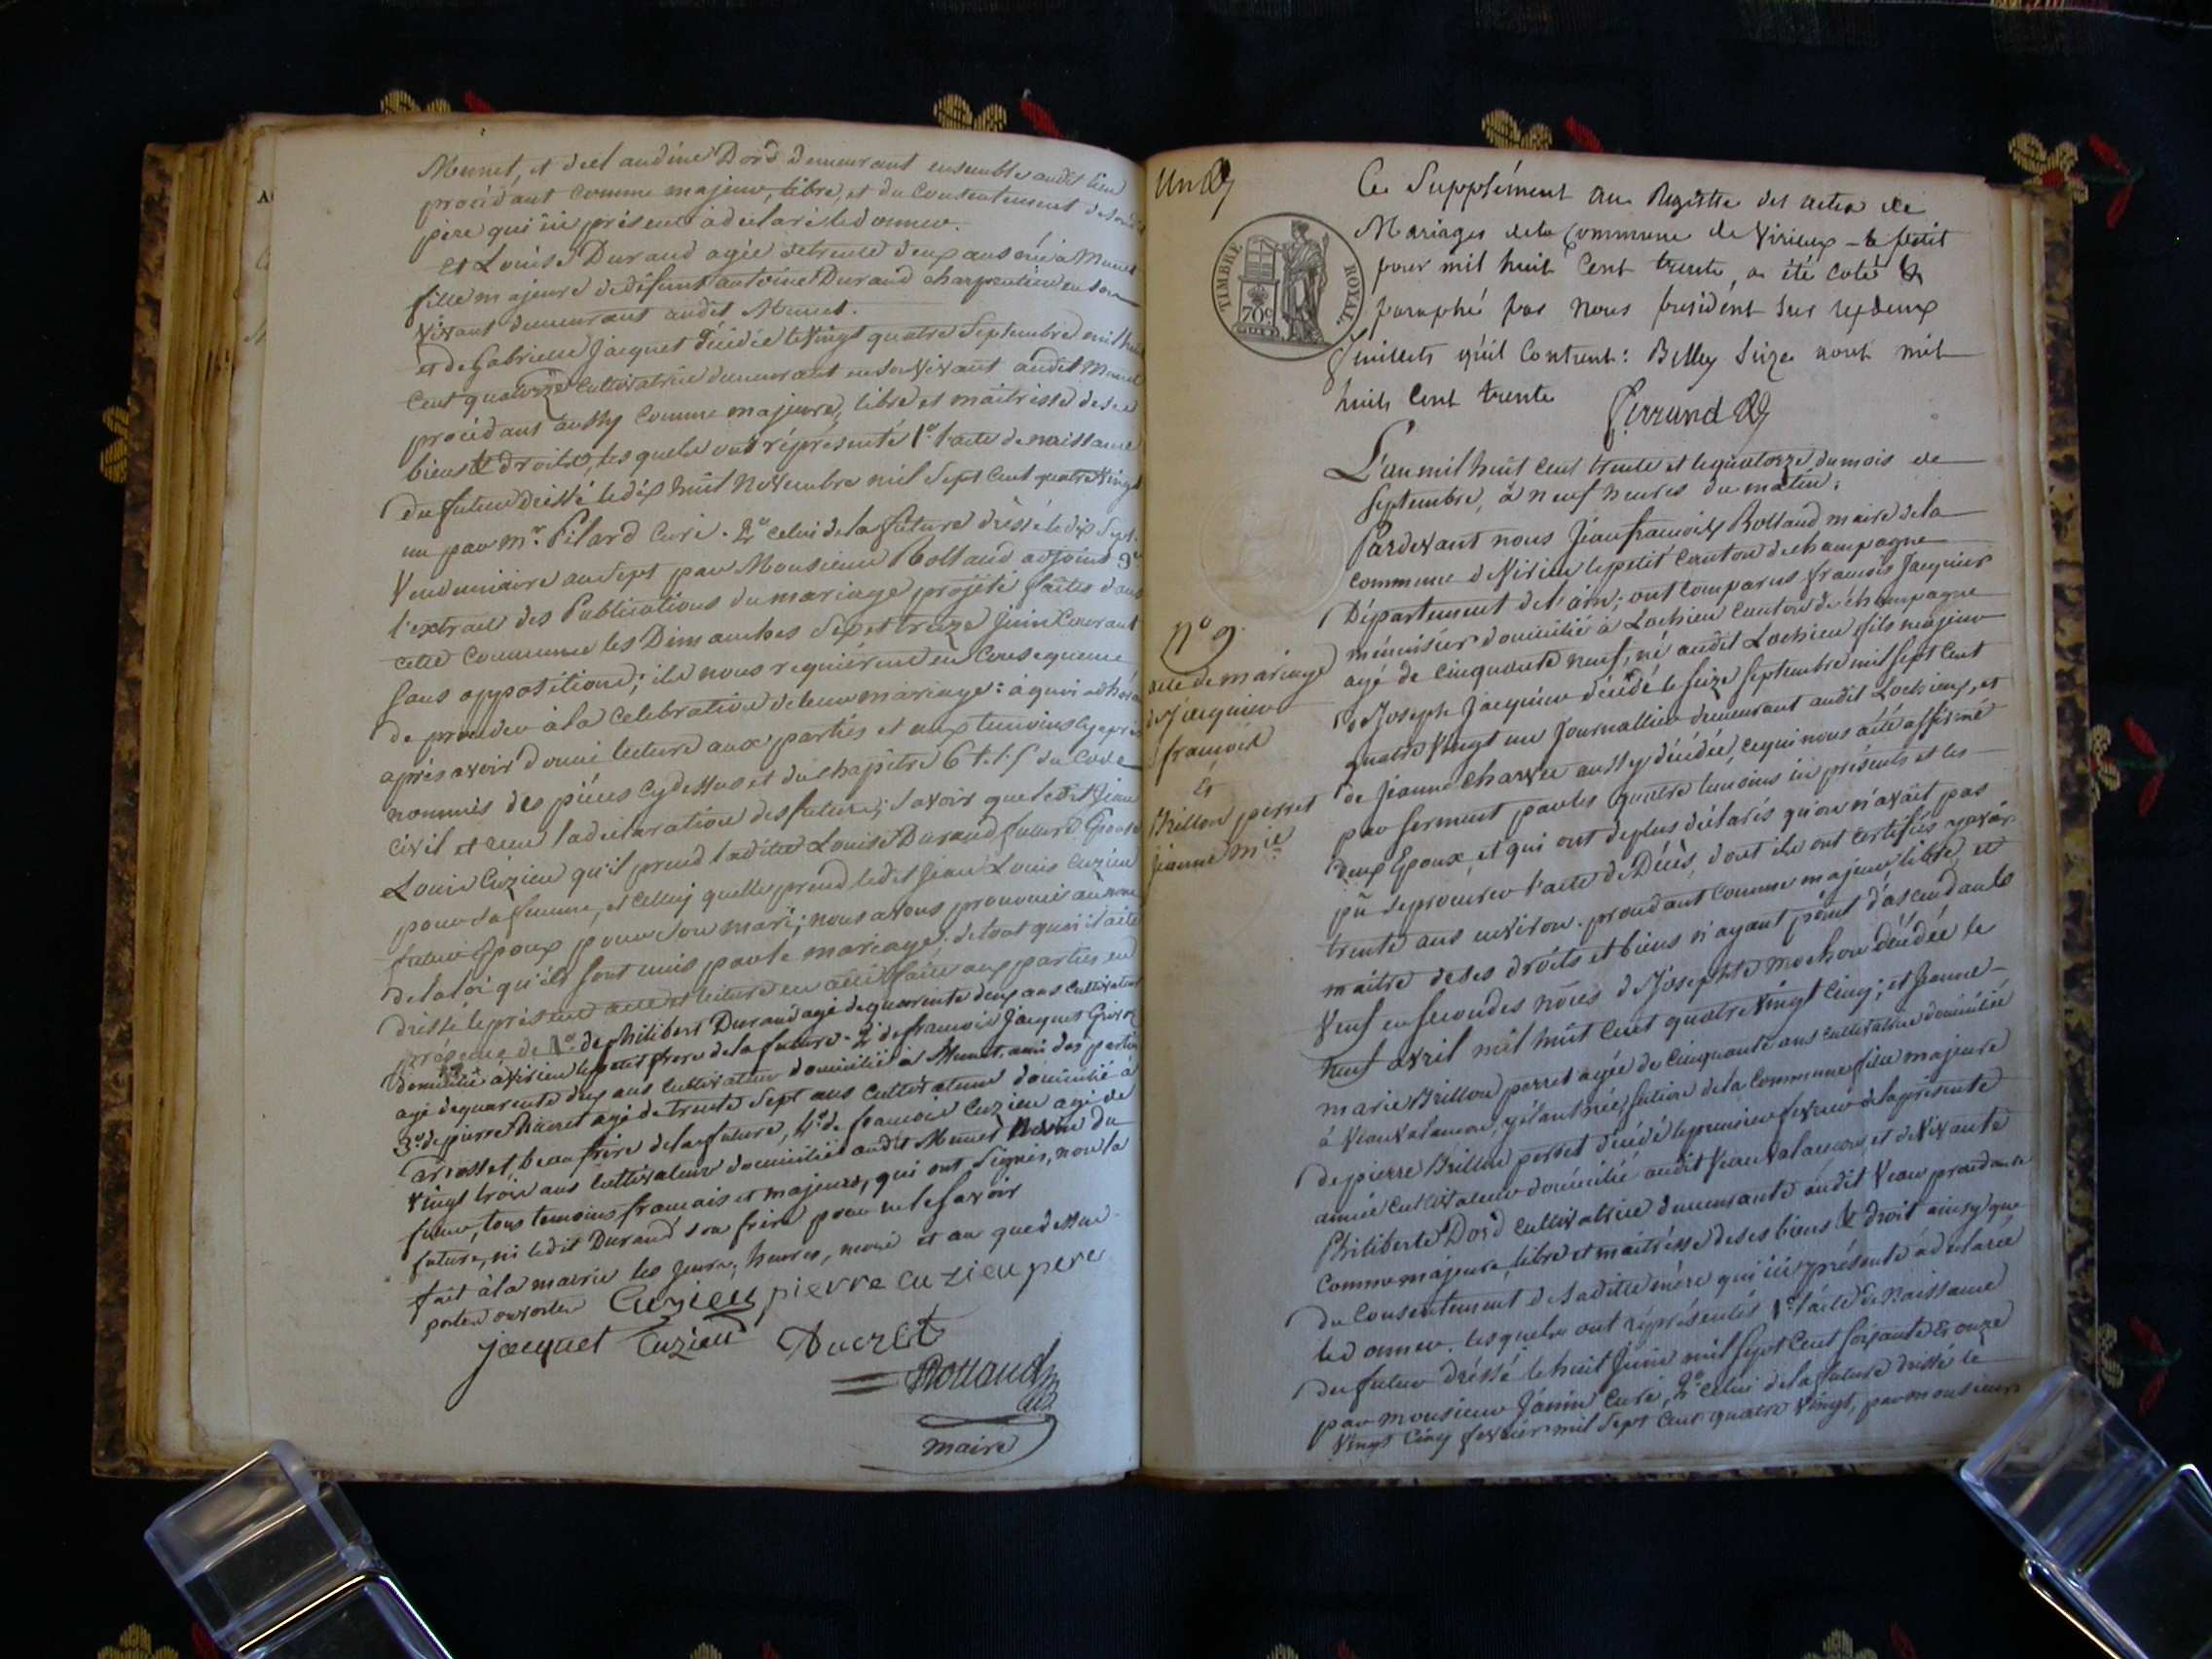 Munet, et de claudine Dord demeurant ensemble audit lieu
procédant comme majeur, libre, et du consentement de son dit
père qui ici présent a déclaré le donner.
et Louise Durand agée de trente deux ans née à Munet
fille majeure de défunt antoine Durand charpentier en son
vivant demeurant audit Munet.
et de Gabrielle Jacquet décédée le vingt quatre Septembre mil huit
cent quatorze cultivatrice demeurant en son vivant audit Munet
procédant aussy comme majeure, libre et maitresse de ses
biens & droits, lesquels ont réprésenté 1º. l'acte de naissance
du futur dressé le dix huit Novembre mil Sept Cent quatre vingt
un par mr. Pilard Curé. 2º celui de la future dressé le dix Sept.
Vendemiaire an Sept par Monsieur Rolland adjoint 3º
l'extrait des Publications du mariage projété faites dans
cette commune les Dimanches Six et treize Juin Courant
sans oppositions; ils nous requiérent en Consequence
de procéder à la celebration de leur mariage: à quoi adhérant
après avoir donné lecture aux parties et aux temoins cy après
nommés des piéces cy dessus et du chapitre 6 t. 5 du Code
Civil et reçu la déclaration des futurs; savoir que ledit Jean
Louis Cuzieu qu'il prend ladite Louise Durand future Epouse
pour sa femme, et celle cy quelle prend ledit Jean Louis Cuzieu
futur Epoux pour son mari; nous avons prononcé au nom
de la loi qu'ils sont unis par le mariage; de tout quoi il a été
dressé le présent acte et lecture en a été faite aux parties en
présence de 1º. de philibert Durand agé de quarante deux ans cultivateur
domicilié à virieu le petit frere de la future. 2º de francois Jacquet
agé de quarante deux ans cultivateur domicilié à Munet ami des parties
3º. de pierre Ducret agé de trente Sept ans cultivateur domicilié à
beau frère de la future, 4º. de francois Cuzieu agé de
vingt trois ans cultivateur domicilié audit Munet du
futur, tous temoins francais et majeurs, qui ont Signés, non la
future, ni ledit Durand son frére pour ne le savoir
fait à la mairie les jour, heures, mois et an que dessus
portes ouvertes Cuzieu pierre cuzieu pere
jacquet Cuzieu Ducret
Rolland
maire
Un
Ce Supplément au Registre des actes de
Mariages de la Commune de Virieux-le petit
pour mil huit Cent trente, a été coté &
paraphé par Nous president sur les deux
feuillets qu'il Contient: Belley Seize aout mil
huit Cent trente
Ferrand
TIMBRE ROYAL
70c
L'an mil huit cent trente et le quatorze du mois de
Septembre, à neuf heures du matin;
Pardevant nous Jean francois Rolland maire de la
commune de Virieu le petit Canton de champagne
Département de l'ain; ont comparus francois Jacquier
ménuisier domicilié à Lochieu canton de champagne
agé de cinquante neuf, né audit Lochieu fils majeur
de Joseph Jacquier décédé le Seize Septembre mil sept cent
quatre vingt un Journallier demeurant audit Lochieux, et
de Jeanne Charvet aussy décédée, ce qui nous a été affirmé
par serment par les quatre temoins ici présents et les
deux Epoux, et qui ont deplus déclarés qu'on n'avait pas
pû se procurer l'acte de Décès, dont ils ont certifiés y avoir
trente ans environ. procédant comme majeur, libre, et
maitre de ses droits et biens n'ayant point d'ascendants
veuf en secondes nôces de Josephte Mochon décédée le
neuf avril mil huit cent quatre vingt cinq; et Jeanne-
marie Brillon perret agée de Cinquante ans cultivatrice domiciliée
à Vaux valamon, y étant née, section de la Commune fille majeure
de pierre Brillon perret décédé le premier fevrier de la présente
année cultivateur domicilié audit Vaux valamon et de vivante
Philiberte Dord cultivatrice demeurante audit Vaux procédante
comme majeure, libre et maitresse de ses biens & droit ainsy que
du consentement de sa dite mére qui ici présente a déclaré
le donner. lesquels ont réprésentés 1º. l'acte de naissance
du futur dréssé le huit Juin mil Sept Cent Soixante & onze
par monsieur Janin Curé, 2º. celui de la future dréssé le
vingt Cinq fevrier mil Sept Cent quatre vingt, par monsieur
nº 9.
acte de mariage
de Jacquier
francois
&
Brillon perret
Jeanne mie